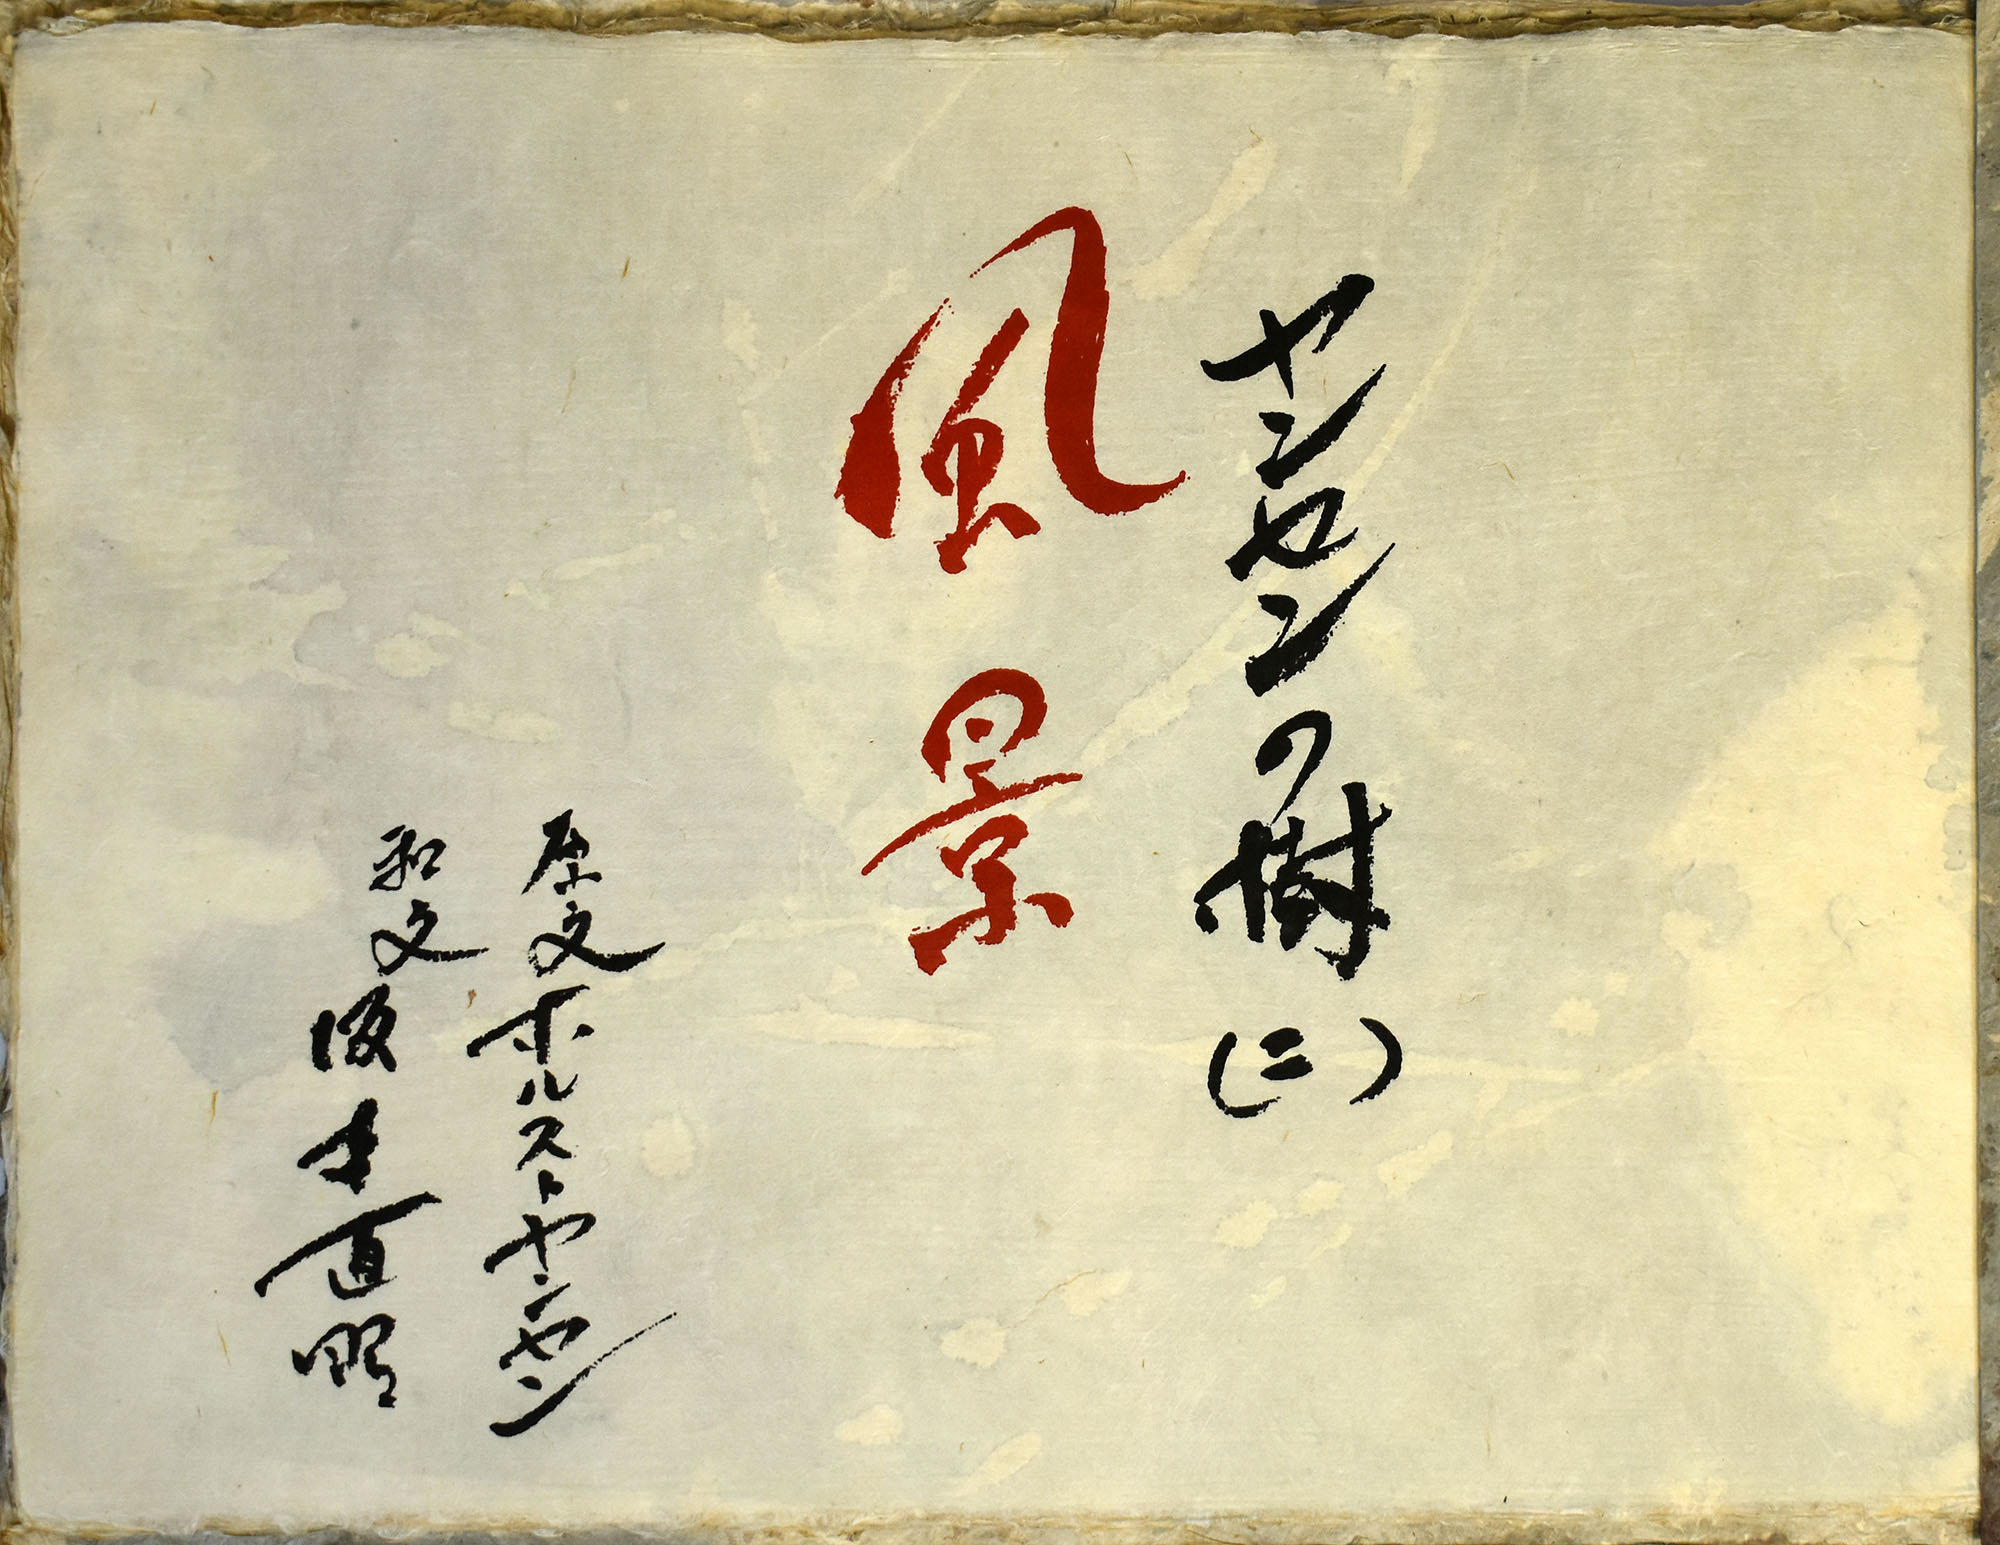 ヤンセンの樹(二)
風景
原文 ホルスト・ヤンセン
和文 坂本直明